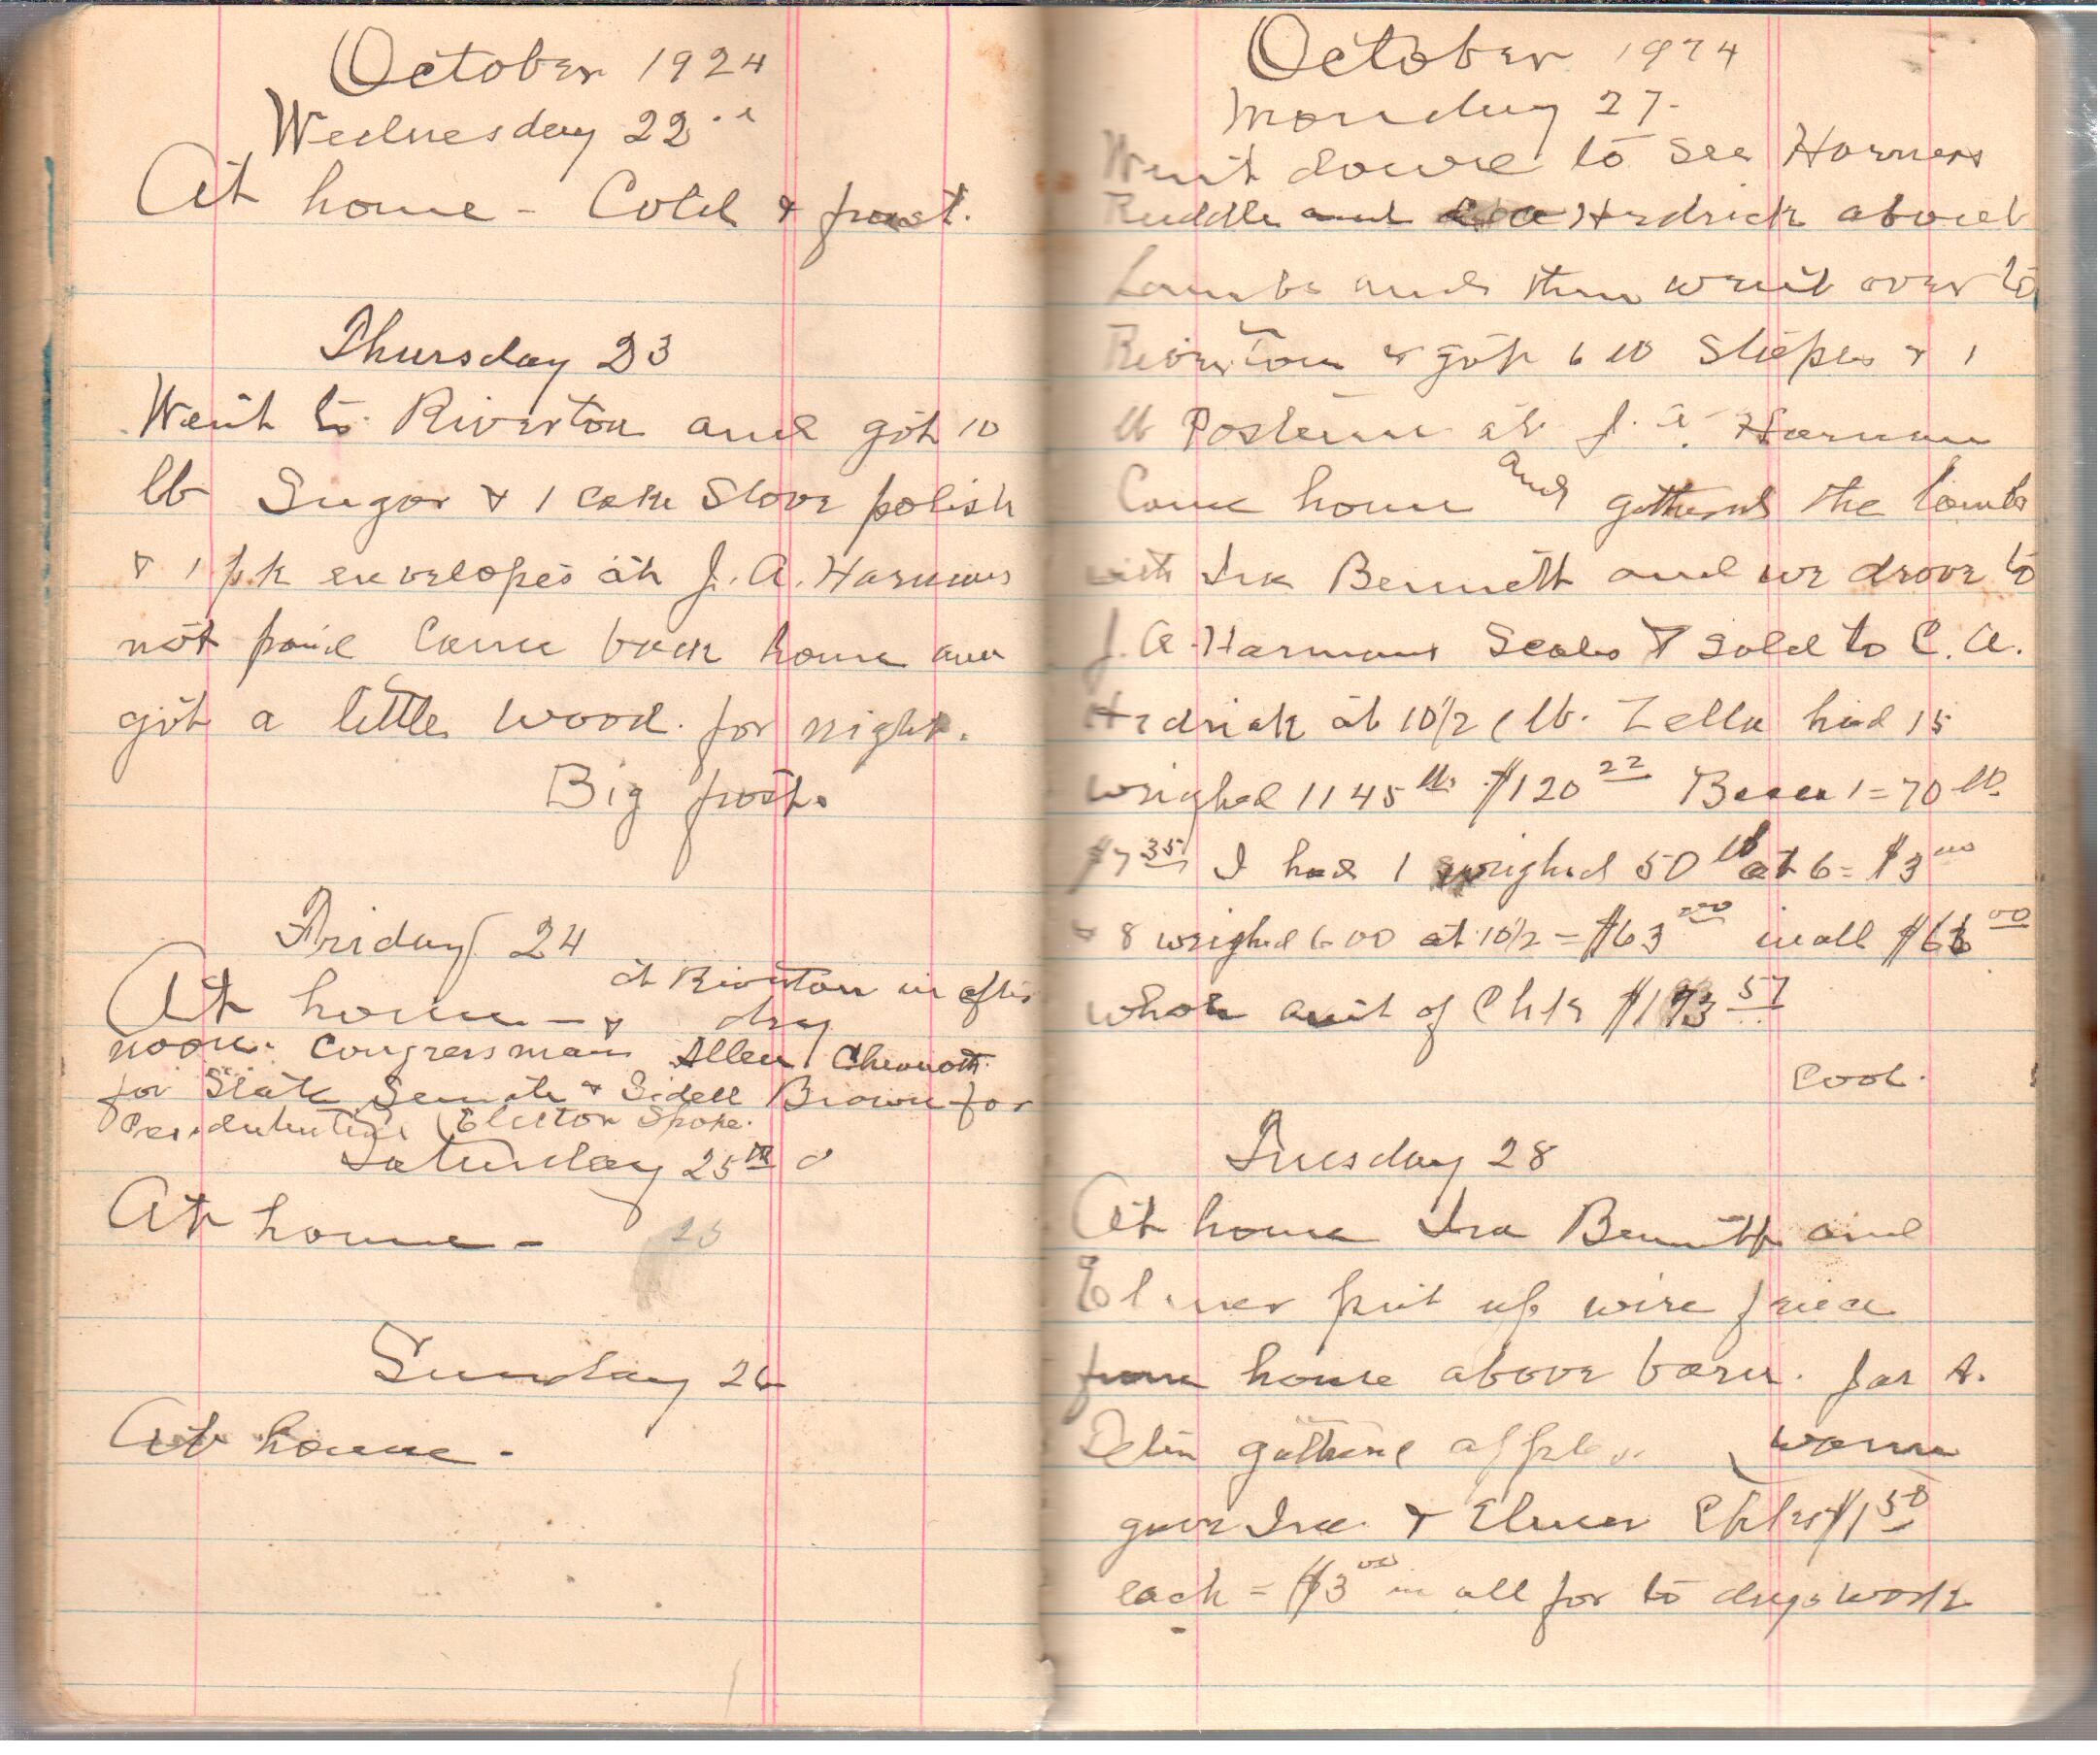 October 1924
Wednesday 22
At home - Cold & frost.
Thursday 23
Went to Riverton and got 10
lb Sugar & 1 cake Stove polish
& 1 pk envelopes at J. A. Harmans
not paid Came back home and
got a little wood for night.
Big frost.
Friday 24
At home - & at Riverton in after
dry
noon. Congressman Allen Chenoweth
for State Senate & Sidell Brown for
Presidential Elector Spoke.
Saturday 25th
At home -
25
Sunday 26
At home -
October 1924
Monday 27
Went down to see Harness
Ruddle and Hedrick about
Lambs and then went over to
Riverton & got 6 lb Staples & 1
lb at J. A. Harman
Came home and gathered the lambs
with Ira Bennett and we drove to
J. A. Harmans Scales & sold to C. A.
Hedrick at 10 1/2 c lb. Zella had 15
weighed 1145 lb $120 22 1 = 70 lb.
$7 35 I had 1 weighed 50 lb at 6 = $3 00
& 8 weighed 600 at 10 1/2 = $63 00 in all $66 00
whole amt of Chk $193 57
Cool.
Tuesday 28
At home Ira Bennett and
Elmer put up wire fence
from house above barn. Jas A.
gathered apples warm
gave Ira & Elmer Chks $1 50
each = $3 00 in all for to days work